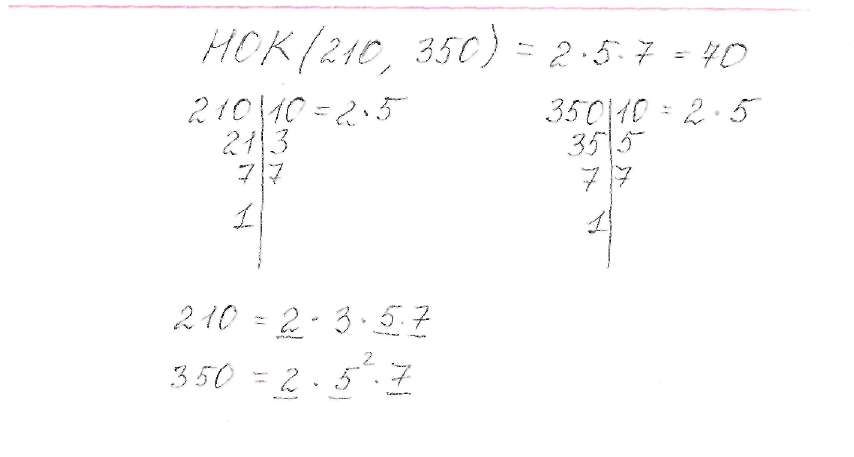 НОК (210, 350) = 2 · 5 · 7 = 70
210 | 10 = 2 · 5
21 | 3
7 | 7
1 |
350 | 10 = 2 · 5
35 | 5
7 | 7
1 |
210 = 2 · 3 · 5 · 7
350 = 2 · 5² · 7